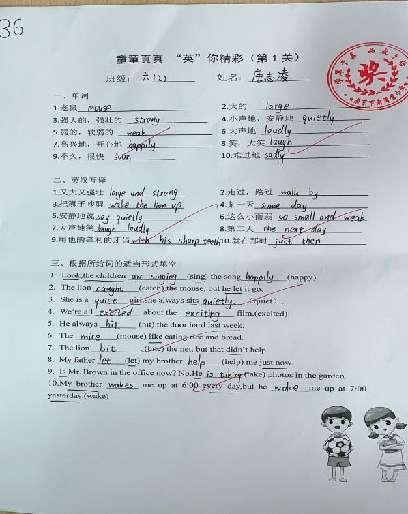 36
章章页页 “英”你精彩（第1关）
班级：六(2) 姓名：
一、单词
1.老鼠 mouse 2.大的 large
3.强大的，强壮的 strong 4.小声地，安静地 quietly
5.弱的，软弱的 weak 6.大声地 loudly
7.高兴地，开心地 happily 8.笑，大笑 laugh
9.不久，很快 soon 10.难过地 sadly
二、
1.又大又强壮 large and strong 2.走过，路过 walk by
3.把狮子吵醒 wake the lion up 4.某一天 some day
5.安静地说 say quietly 6.这么小而弱 so small and weak
7.大声地笑 laugh loudly 8.第二天 the next day
9.用他的锋利的牙齿 with his sharp teeth 10.就在那时 just then
三、根据所给词的适当形式填空
1. Look,the children are singing (sing) the song happily (happy)
2. The lion caught (catch) the mouse, but he let it go.
3. She is a quiet girl.She always sits quietly (quiet) .
4. We're all excited about the exciting film.(excited)
5. He always hit (hit) the door hard last week.
6. The mice (mouse) like eating rice and bread.
7. The lion bit (bite) the net, but that didn't help.
8. My father let (let) my brother help (help) me just now.
9. Is Mr. Brown in the office now? No.He is taking (take) photos in the garden.
10.My brother wakes me up at 6:00 every day,but he woke me up at 7:00
yesterday.(wake)